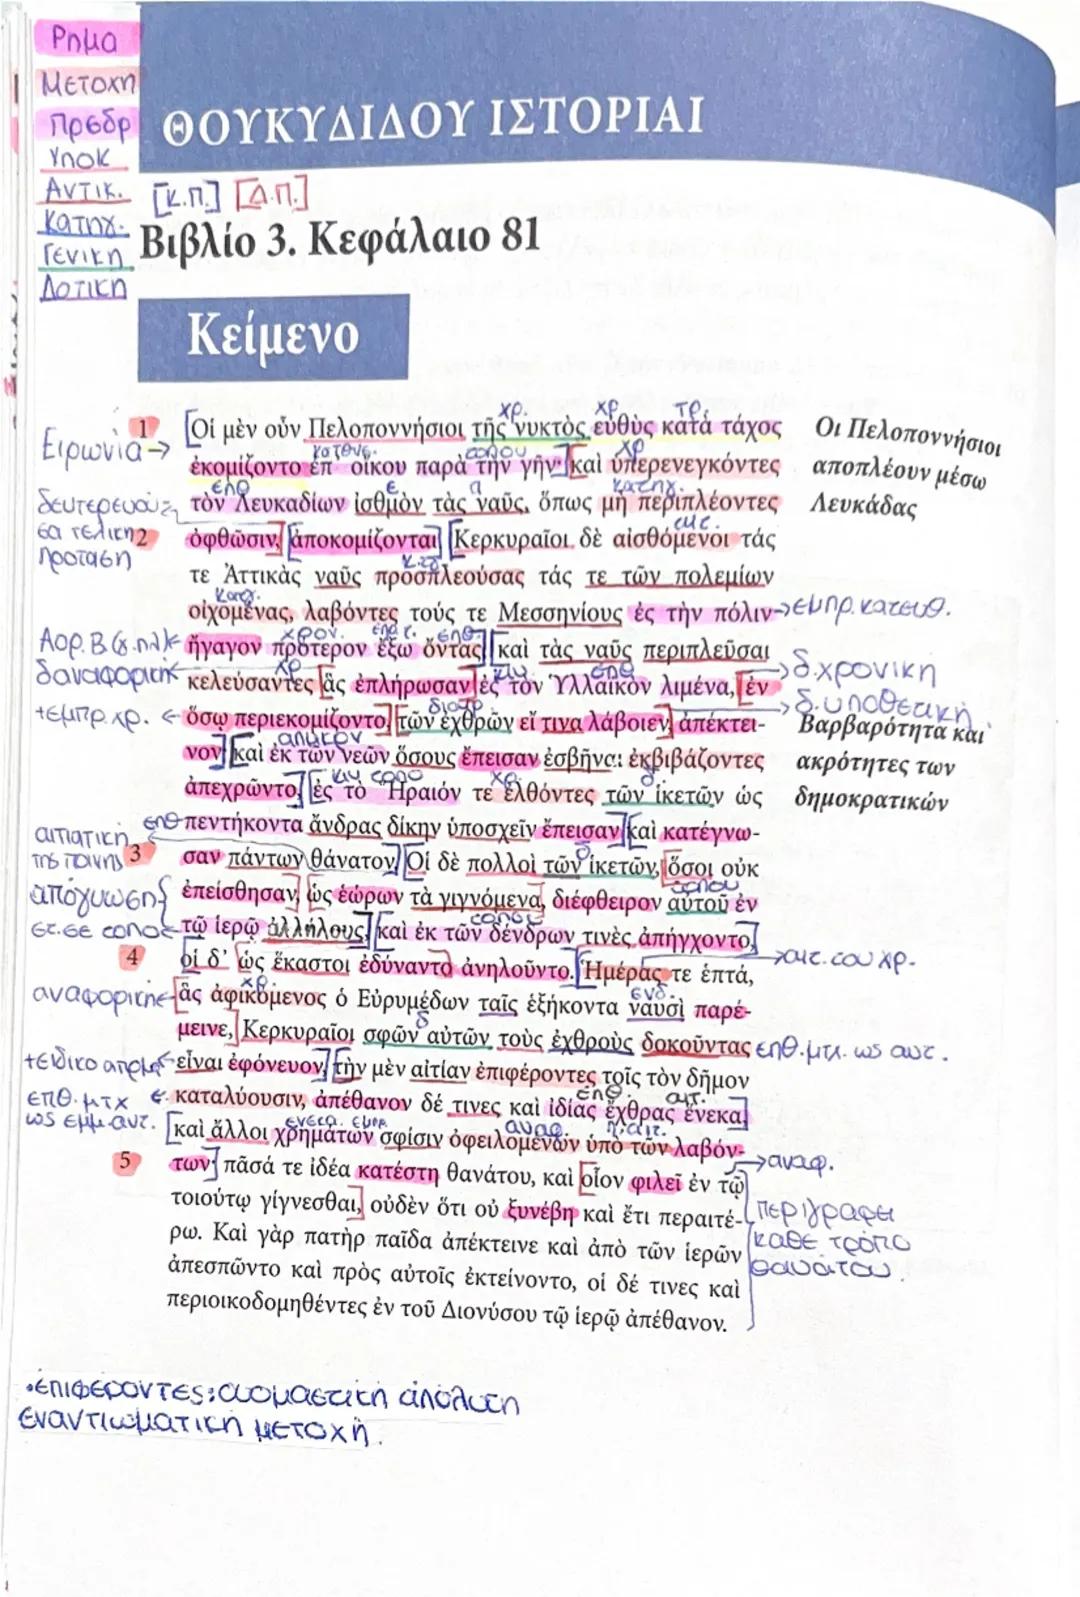 Ρημα
Μετοχη
Προθρ
Υποκ
Αντικ. [Κ.Π.] [Δ.Π.]
Κατηγ.
Γενικη
Δοτικη
ΘΟΥΚΥΔΙΔΟΥ ΙΣΤΟΡΙΑΙ
Βιβλίο 3. Κεφάλαιο 81
Κείμενο
χρ. χρ τρ.
Ειρωνία → 1 [Οἱ μὲν οὖν Πελοποννήσιοι τῆς νυκτὸς εὐθὺς κατὰ τάχος
Οι Πελοποννήσιοι
αποπλέουν μέσω
Λευκάδας
κατευθ. τοπου χρ
ἐκομίζοντο ἐπ᾽ οἴκου παρὰ τὴν γῆν· [καὶ ὑπερενεγκόντες
επθ ε α κατηγ.
τὸν Λευκαδίων ἰσθμὸν τὰς ναῦς, ὅπως μὴ περιπλέοντες
δευτερεύουσα τελικη προταση
αιτ.
2 ὀφθῶσιν, [ἀποκομίζονται] [Κερκυραῖοι δὲ αἰσθόμενοι τάς
κτθ
τε Ἀττικὰς ναῦς προσπλεούσας τάς τε τῶν πολεμίων
κατηγ.
οἰχομένας, λαβόντες τούς τε Μεσσηνίους ἐς τὴν πόλιν → εμπρ. κατευθ.
χρον. επθ.
Αορ. Β ἤγαγον πρότερον ἔξω ὄντας] [καὶ τὰς ναῦς περιπλεῦσαι
χρ κιν επθ
δαναφορική κελεύσαντες [ἃς ἐπλήρωσαν] ἐς τὸν Ὑλλαϊκὸν λιμένα, [ἐν → δ. χρονική
διαιρ
+εμπρ. χρ. ← ὅσῳ περιεκομίζοντο,] [τῶν ἐχθρῶν εἴ τινα λάβοιεν, ἀπέκτει- → δ. υποθετική
Βαρβαρότητα και
ακρότητες των
δημοκρατικών
νον] [καὶ ἐκ τῶν νεῶν ὅσους ἔπεισαν ἐσβῆναι ἐκβιβάζοντες
κιν τοπο χρ. δ
ἀπεχρῶντο,] [ἐς τὸ Ἥραιόν τε ἐλθόντες τῶν ἱκετῶν ὡς
επθ πεντήκοντα ἄνδρας δίκην ὑποσχεῖν ἔπεισαν] [καὶ κατέγνω-
αιτιατική της ποινης
3 σαν πάντων θάνατον.] [Οἱ δὲ πολλοὶ τῶν ἱκετῶν, [ὅσοι οὐκ
τοπου
απόγνωση { ἐπείσθησαν, ὡς ἑώρων τὰ γιγνόμενα, διέφθειρον αὐτοῦ ἐν
τοπου
τῷ ἱερῷ ἀλλήλους,] [καὶ ἐκ τῶν δένδρων τινὲς ἀπήγχοντο,]
4 οἱ δ᾽ [ὡς ἕκαστοι ἐδύναντο ἀνηλοῦντο. [Ἡμέρας τε ἑπτά, → αιτ. του χρ.
χρ ενδ.
αναφορικη [ἃς ἀφικόμενος ὁ Εὐρυμέδων ταῖς ἑξήκοντα ναυσὶ παρέ-
δ
μεινε,] Κερκυραῖοι σφῶν αὐτῶν τοὺς ἐχθροὺς δοκοῦντας επθ. μτχ. ως αντ.
+ειδικο απρμφ ← εἶναι ἐφόνευον, [τὴν μὲν αἰτίαν ἐπιφέροντες τοῖς τὸν δῆμον
επθ. αιτ.
επθ. μτχ ως εμμ. αντ. ← καταλύουσιν, ἀπέθανον δέ τινες καὶ ἰδίας ἔχθρας ἕνεκα,]
[καὶ ἄλλοι χρημάτων σφίσιν ὀφειλομένων ὑπὸ τῶν λαβόν-
5 των·] πᾶσά τε ἰδέα κατέστη θανάτου, καὶ [οἷον φιλεῖ ἐν τῷ → αναφ.
τοιούτῳ γίγνεσθαι,] οὐδὲν ὅτι οὐ ξυνέβη καὶ ἔτι περαιτέ-
ρω. Καὶ γὰρ πατὴρ παῖδα ἀπέκτεινε καὶ ἀπὸ τῶν ἱερῶν
ἀπεσπῶντο καὶ πρὸς αὐτοῖς ἐκτείνοντο, οἱ δέ τινες καὶ
περιοικοδομηθέντες ἐν τοῦ Διονύσου τῷ ἱερῷ ἀπέθανον.
περιγραφει
καθε τρόπο
θανάτου.
•ἐπιφέροντες: ονομαστική απόλυτη
εναντιωματική μετοχή.